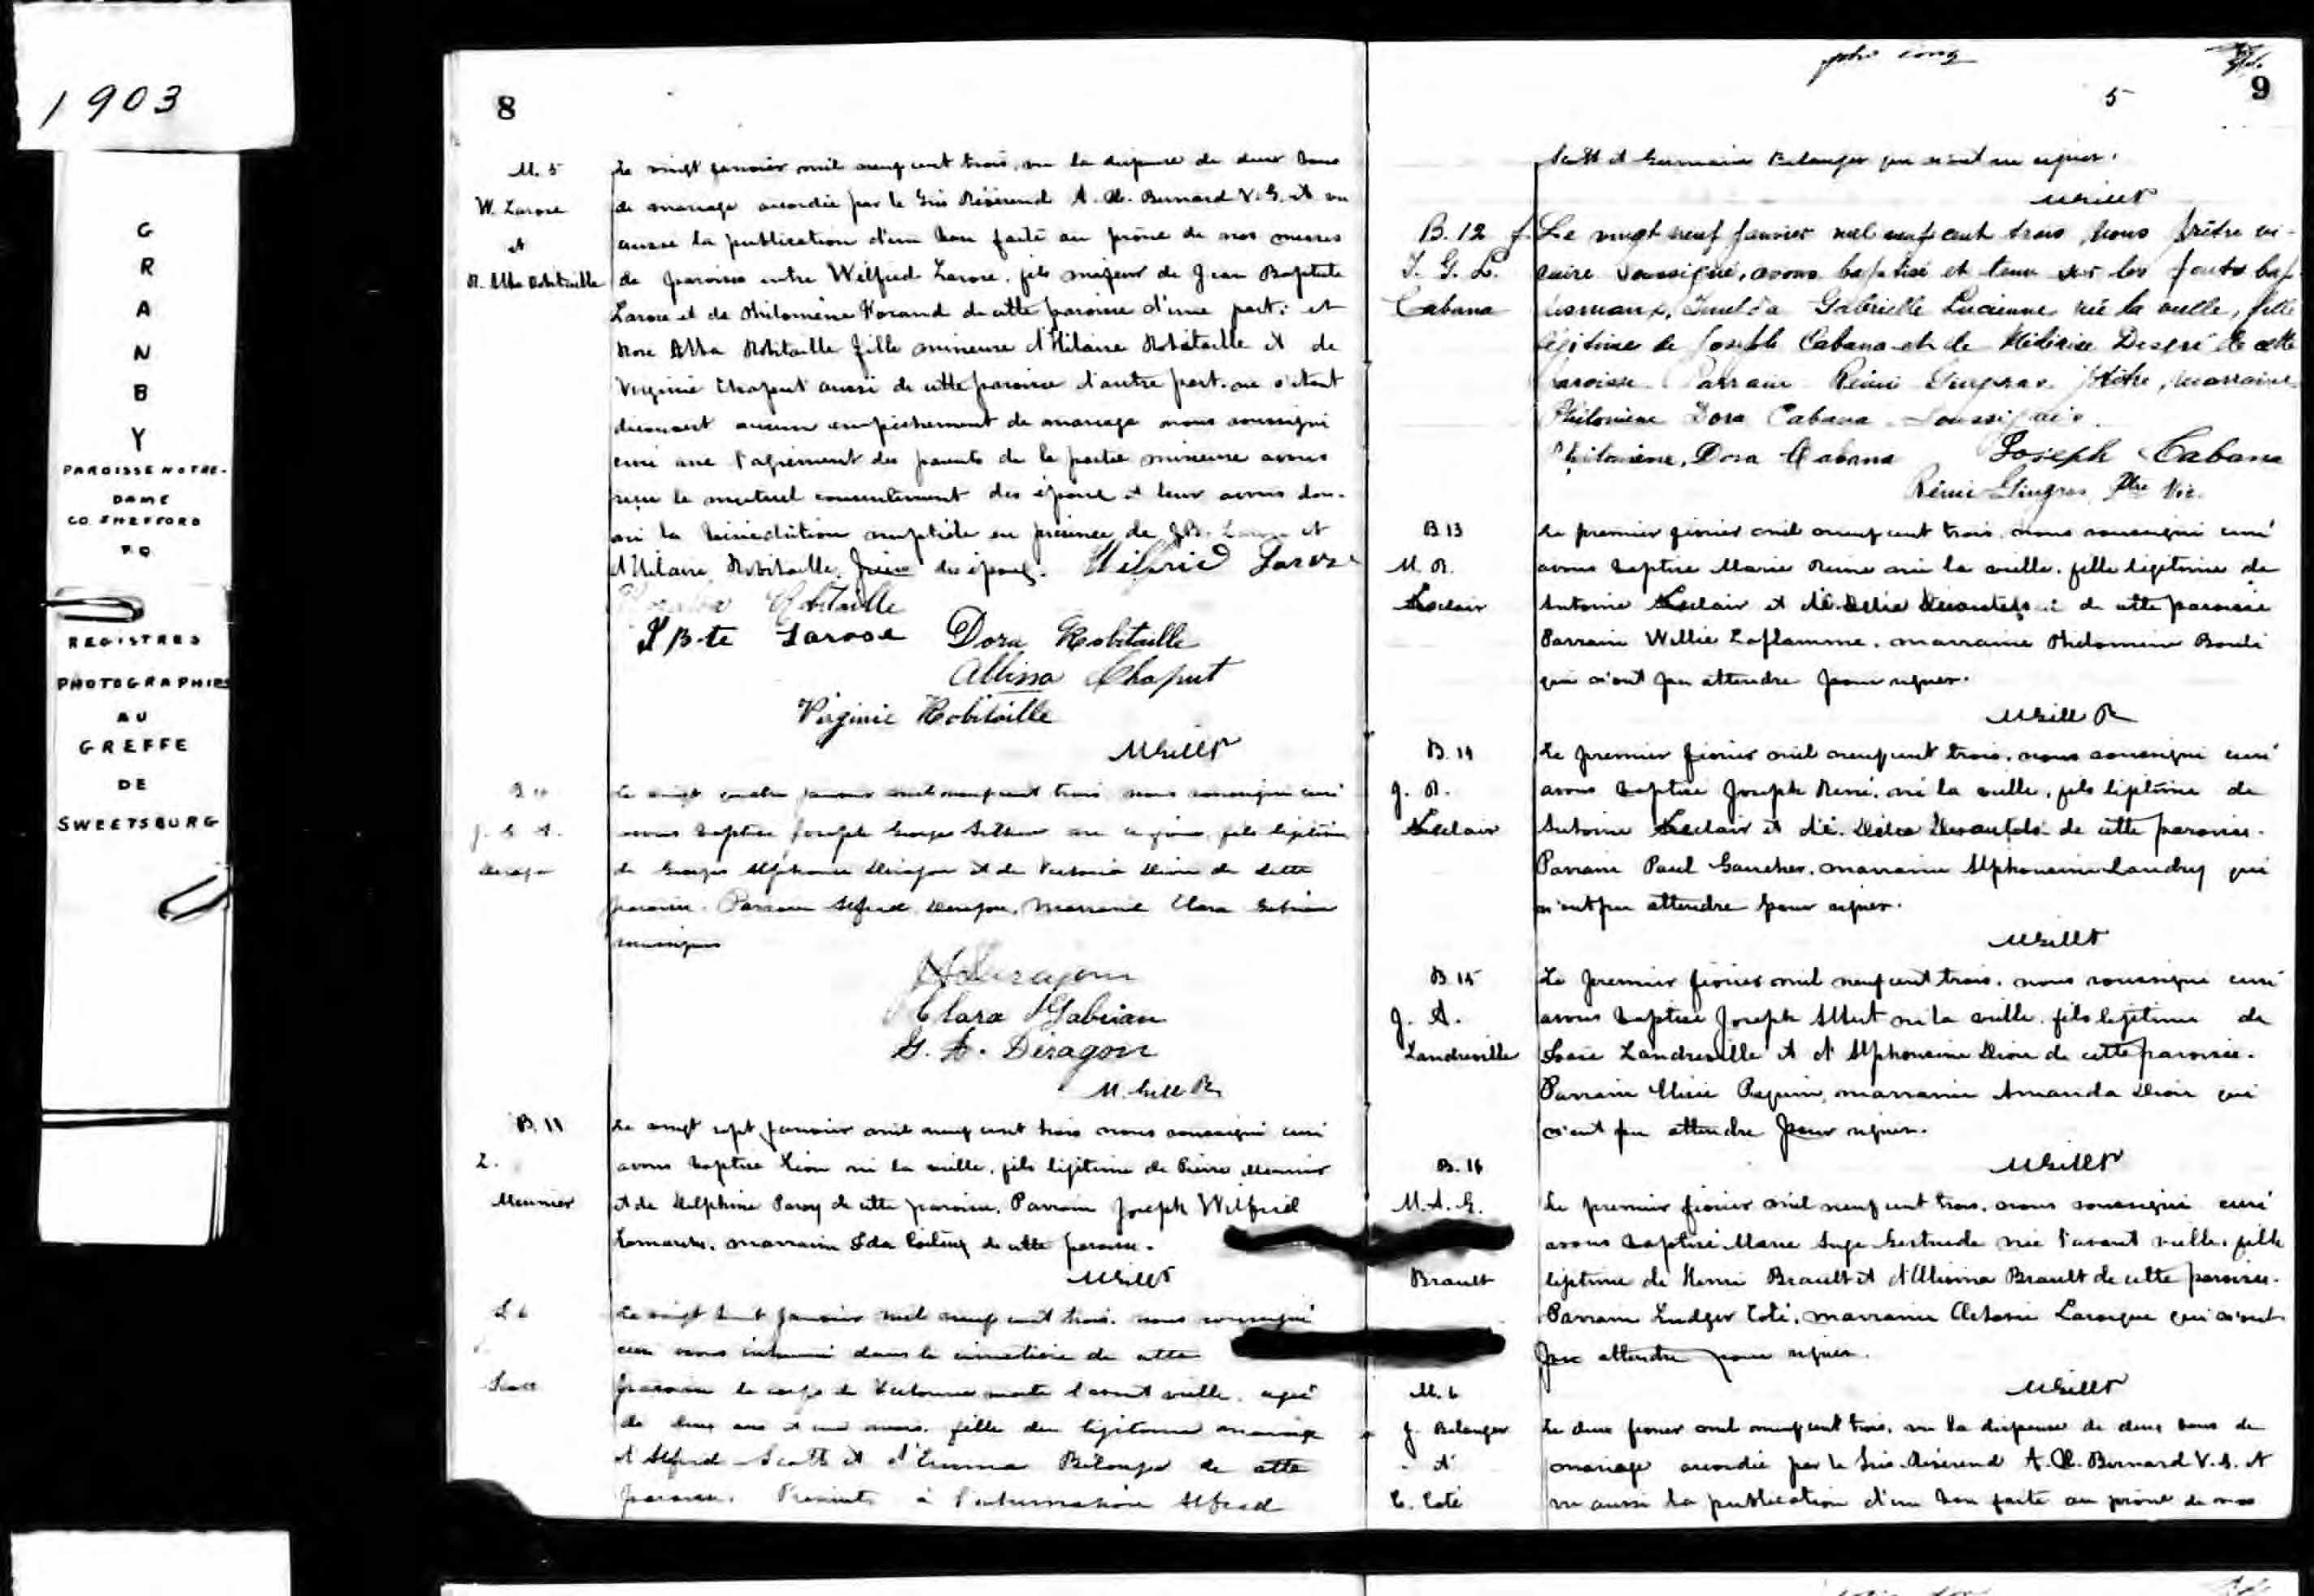 1903
G
R
A
N
B
Y
PAROISSE NOTRE-
DAME
CO. SHEFFORD
P.Q
REGISTRES
PHOTOGRAPHIES
AU
GREFFE
DE
SWEETSBURG
8
M. 5
W. Larose
et
R. Alba Robitaille
Le vingt janvier mil neuf cent trois, vu la dispense de deux bans
de mariage accordée par le Très Révérend A. O. Bernard V. G. et vu
aussi la publication d'un ban faite au prône de nos messes
de paroisse entre Wilfrid Larose, fils majeur de Jean Baptiste
Larose et de Philomène de cette paroisse d'une part; et
Rose Alba Robitaille fille mineure d'Hilaire Robitaille et de
Virginie Chaput aussi de cette paroisse d'autre part, ne s'étant
découvert aucun empêchement de mariage nous soussigné
curé avec l'agrément des parents de la partie mineure avons
reçu le mutuel consentement des époux et leur avons don-
né la bénédiction nuptiale en présence de J.B. Larose et
d'Hilaire Robitaille, pères des époux. Wilfrid Larose
Robitaille
J Bte Larose Dora Robitaille
Albina Chaput
Virginie Robitaille
M Gill Ptr
B 10
J. G. A.
Deragon
Le vingt quatre janvier mil neuf cent trois, nous soussigné curé
avons baptisé Joseph Georges né ce jour, fils légitime
de Georges Alphonse Deragon et de Victoria Dion de cette
paroisse. Parrain Alfred Deragon, Marraine Clara Gabrian
soussignés
Deragon
Clara Gabrian
G. A. Deragon
M. Gill Ptr
B. 11
L.
Meunier
Le vingt sept janvier mil neuf cent trois nous soussigné curé
avons baptisé Léon né la veille, fils légitime de Pierre Meunier
et de Delphine de cette paroisse. Parrain Joseph Wilfrid
marraine Ida de cette paroisse.
M Gill Ptr
S 6
Scott
Le vingt huit janvier mil neuf cent trois, nous soussigné
curé avons inhumé dans le cimetière de cette
paroisse le corps de Victorine morte l'avant veille, agée
de deux ans et un mois, fille du légitime mariage
d'Alfred Scott et d'Emma Bélanger de cette
paroisse. Présents à l'inhumation Alfred
folio cinq
5
9
Scott et Germain Belanger qui n'ont su signer.
M Gill Ptr
B. 12 f.
I. G. L.
Cabana
Le vingt neuf Janvier mil neuf cent trois, Nous Prêtre vi-
caire Soussigné, avons baptisé et tenu sur les fonts bap-
tismaux, Imelda Gabrielle Lucienne, née la veille, fille
légitime de Joseph Cabana et de Médérise Després de cette
paroisse. Parrain Rémi Gingras Prêtre, Marraine
Philomène Dora Cabana Soussignés.
Philomène, Dora Cabana Joseph Cabana
Rémi Gingras, Ptre Vic.
B 13
M. R.
Leclair
Le premier février mil neuf cent trois, nous soussigné curé
avons baptisé Marie Reine née la veille, fille légitime de
Antoine Leclair et d'é. Délia Desautels de cette paroisse
Parrain Willie Laflamme, marraine Philomène
qui n'ont pu attendre pour signer.
M Gill Ptr
B. 14
J. R.
Leclair
Le premier février mil neuf cent trois, nous soussigné curé
avons baptisé Joseph René, né la veille, fils légitime de
Antoine Leclair et d'é. Délia Desautels de cette paroisse.
Parrain Paul Gaucher, marraine Alphonsine Landry qui
n'ont pu attendre pour signer.
M Gill Ptr
B. 15
J. A.
Landreville
Le premier février mil neuf cent trois, nous soussigné curé
avons baptisé Joseph Albert né la veille, fils légitime de
Isaie Landreville et d'Alphonsine Dion de cette paroisse.
Parrain Paquin, marraine Amanda Dion qui
n'ont pu attendre pour signer.
M Gill Ptr
B. 16
M. A. G.
Brault
Le premier février mil neuf cent trois, nous soussigné curé
avons baptisé Marie Ange Gertrude née l'avant veille, fille
légitime de Henri Brault et d'Alexina Brault de cette paroisse.
Parrain Ludger Coté, marraine Larocque qui n'ont
pu attendre pour signer.
M Gill Ptr
M. 6
J. Belanger
et
C. Coté
Le deux février mil neuf cent trois, vu la dispense de deux bans de
mariage accordée par le Très Révérend A. O. Bernard V. G. et
vu aussi la publication d'un ban faite au prône de nos